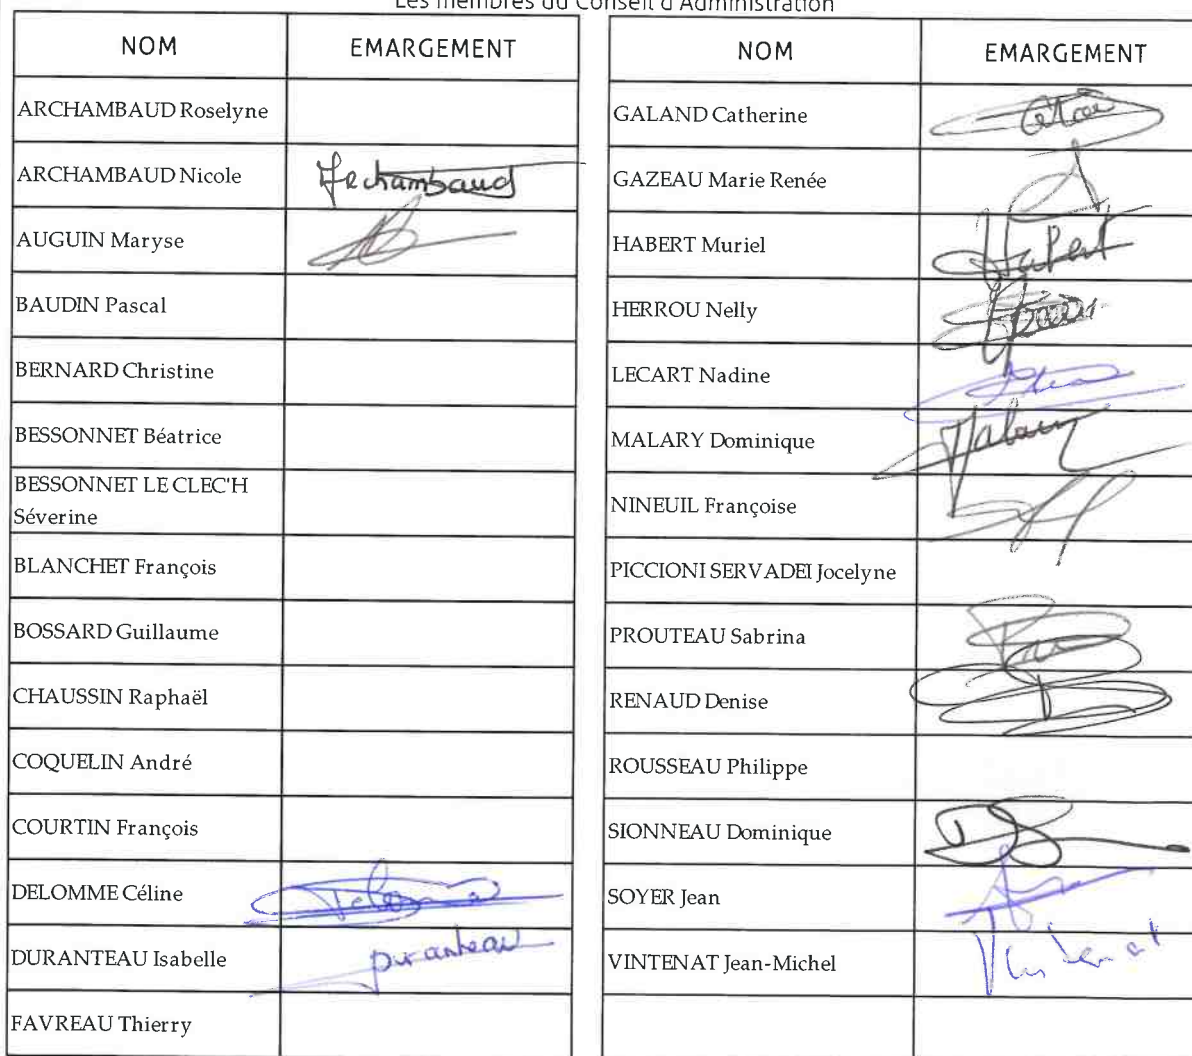 Les membres du Conseil d'Administration
NOM EMARGEMENT
ARCHAMBAUD Roselyne
ARCHAMBAUD Nicole Archambaud
AUGUIN Maryse
BAUDIN Pascal
BERNARD Christine
BESSONNET Béatrice
BESSONNET LE CLEC'H
Séverine
BLANCHET François
BOSSARD Guillaume
CHAUSSIN Raphaël
COQUELIN André
COURTIN François
DELOMME Céline
DURANTEAU Isabelle Duranteau
FAVREAU Thierry
NOM EMARGEMENT
GALAND Catherine
GAZEAU Marie Renée
HABERT Muriel Habert
HERROU Nelly
LECART Nadine
MALARY Dominique Malary
NINEUIL Françoise
PICCIONI SERVADEI Jocelyne
PROUTEAU Sabrina
RENAUD Denise
ROUSSEAU Philippe
SIONNEAU Dominique
SOYER Jean
VINTENAT Jean-Michel Vintenat